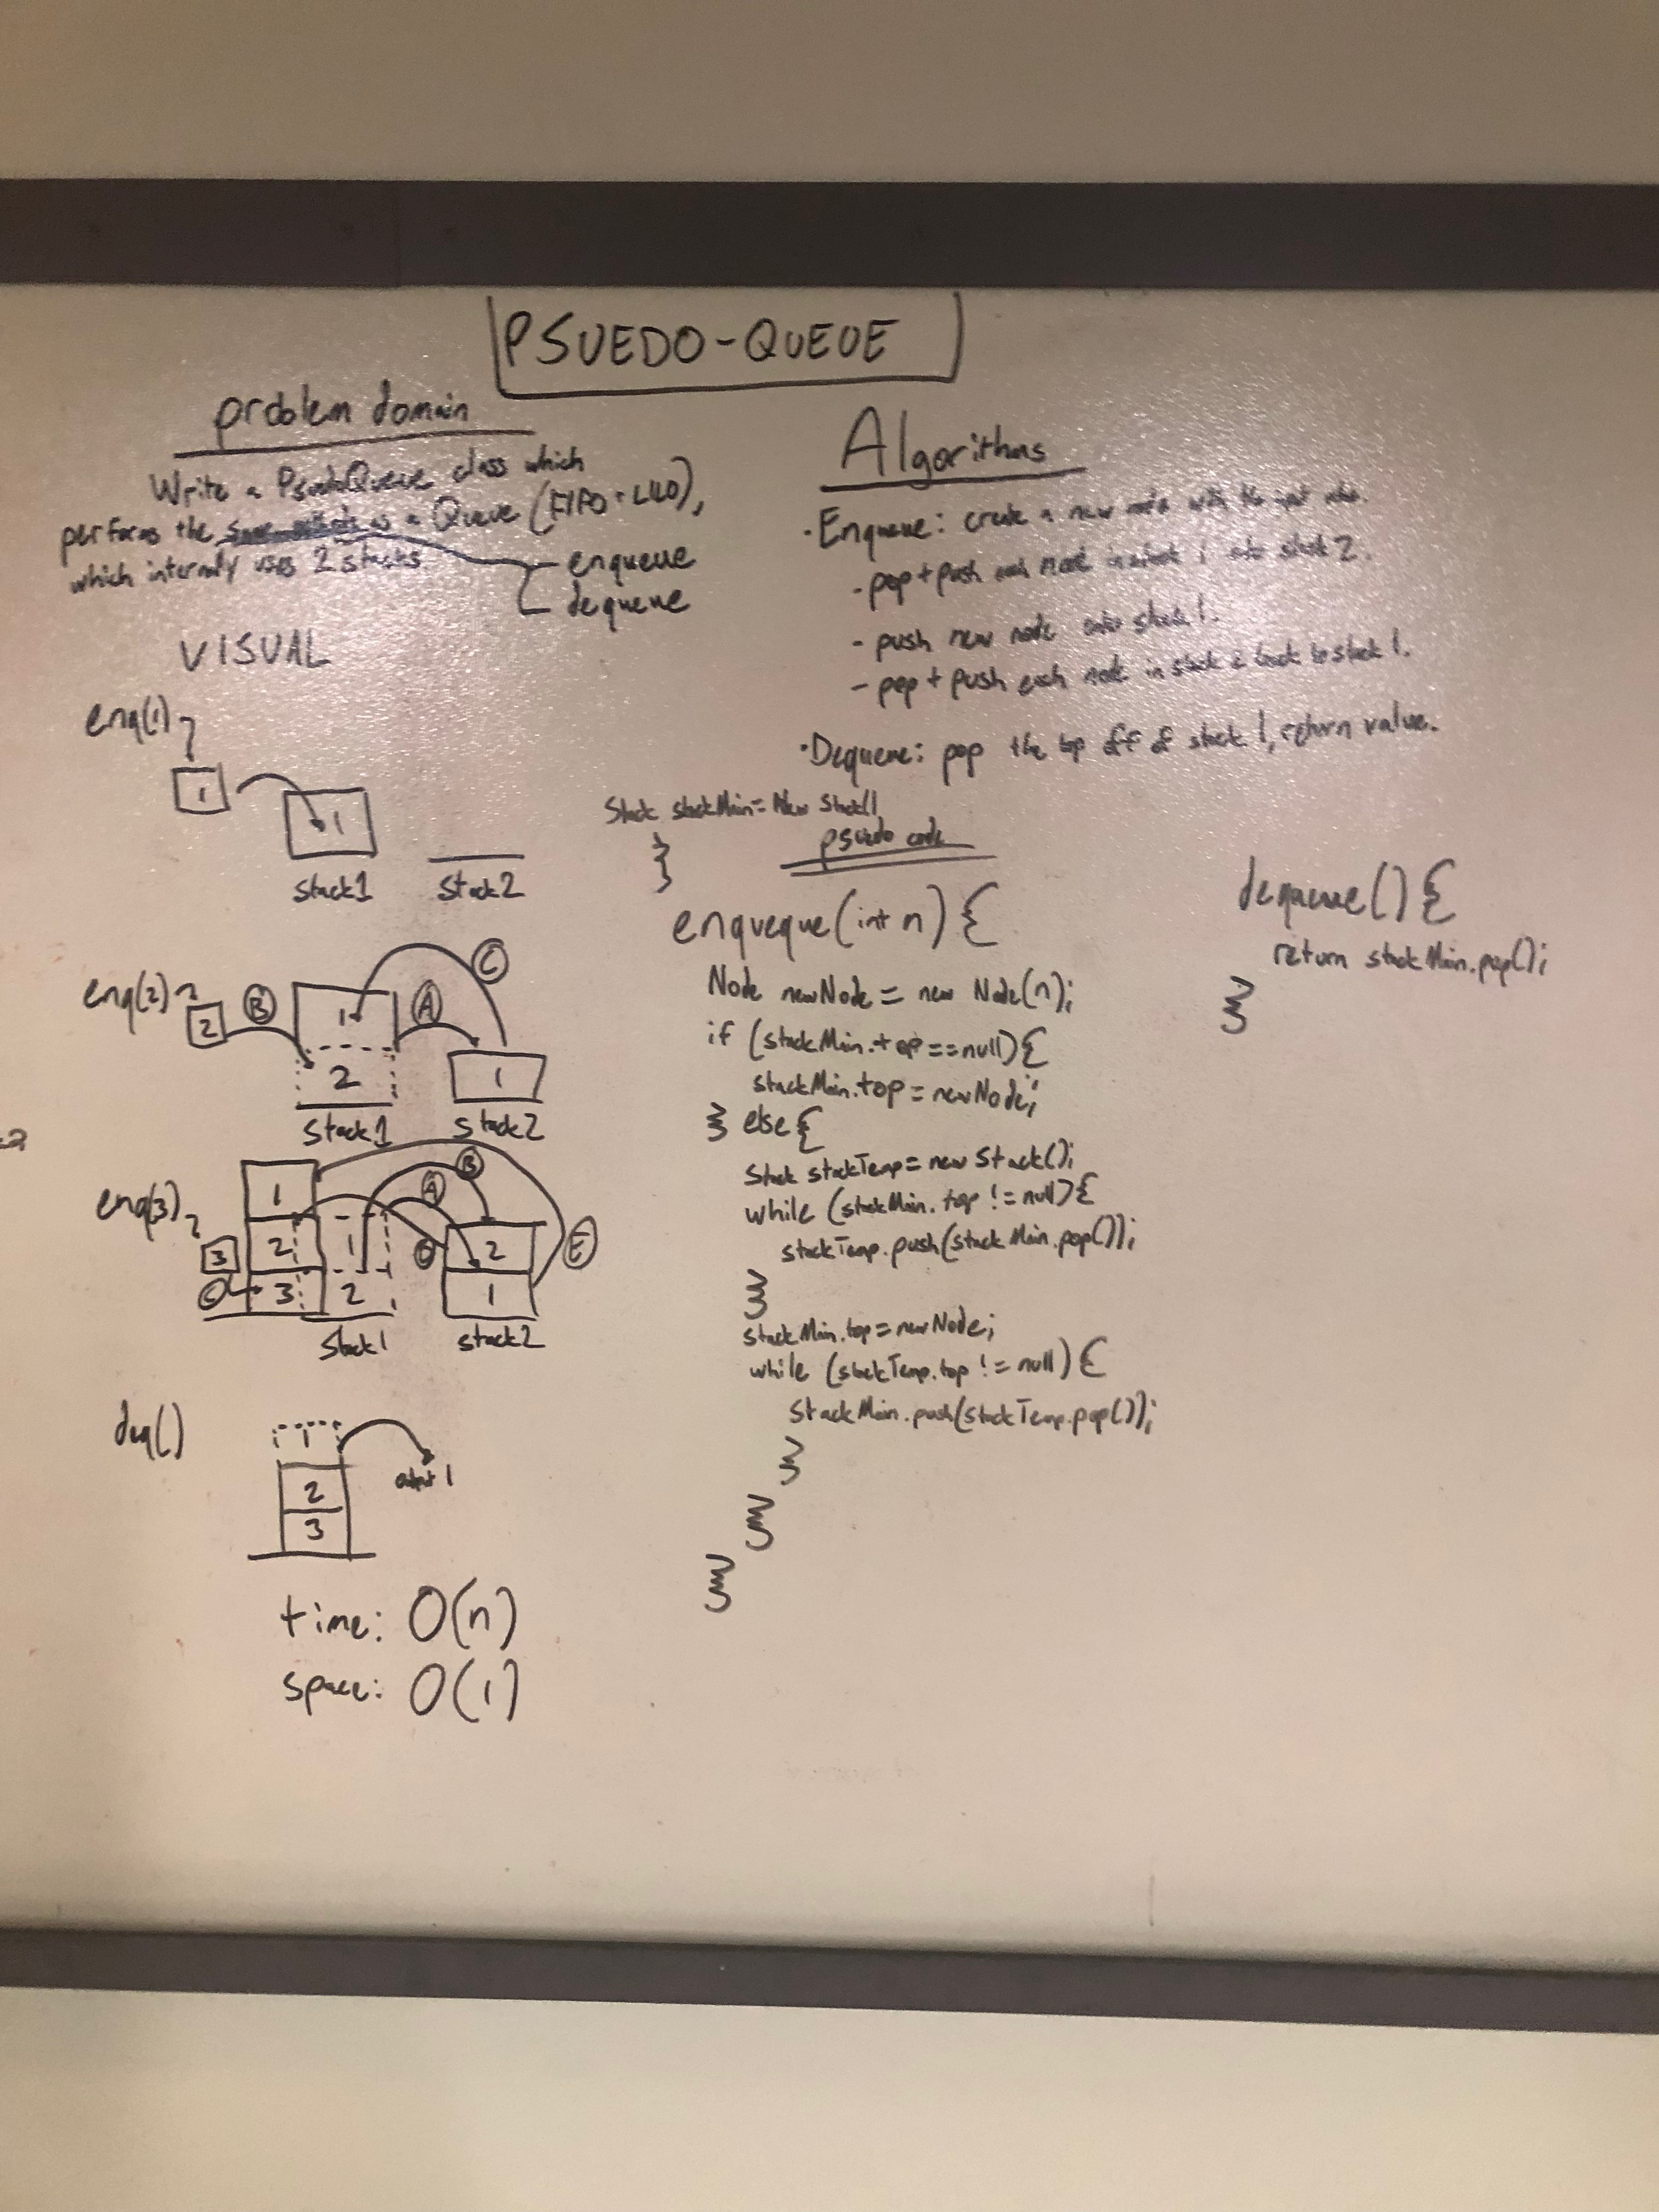 PSUEDO-QUEUE
problem domain
Write a PsuedoQueue class which
performs the same methods as a Queue (FIFO + LILO),
which internally uses 2 stacks
enqueue
dequeue
VISUAL
enq(1)
1
1
stack1
stack2
enq(2)
2
B
1
2
A
C
1
stack1
stack2
enq(3)
3
C
1
2
3
1
2
A
B
D
E
2
1
stack1
stack2
deq()
1
2
3
output 1
time: O(n)
space: O(1)
Algorithms
· Enqueue: create a new node with the input value.
- pop + push each node in stack 1 into stack 2.
- push new node onto stack 1.
- pop + push each node in stack 2 back to stack 1.
· Dequeue: pop the top off of stack 1, return value.
Stack stackMain = New Stack()
}
psuedo code
enqueque(int n) {
Node newNode = new Node(n);
if (stackMain.top == null) {
stackMain.top = newNode;
} else {
Stack stackTemp = new Stack();
while (stackMain.top != null) {
stackTemp.push(stackMain.pop());
}
stackMain.top = newNode;
while (stackTemp.top != null) {
StackMain.push(stackTemp.pop());
}
}
}
dequeue() {
return stackMain.pop();
}